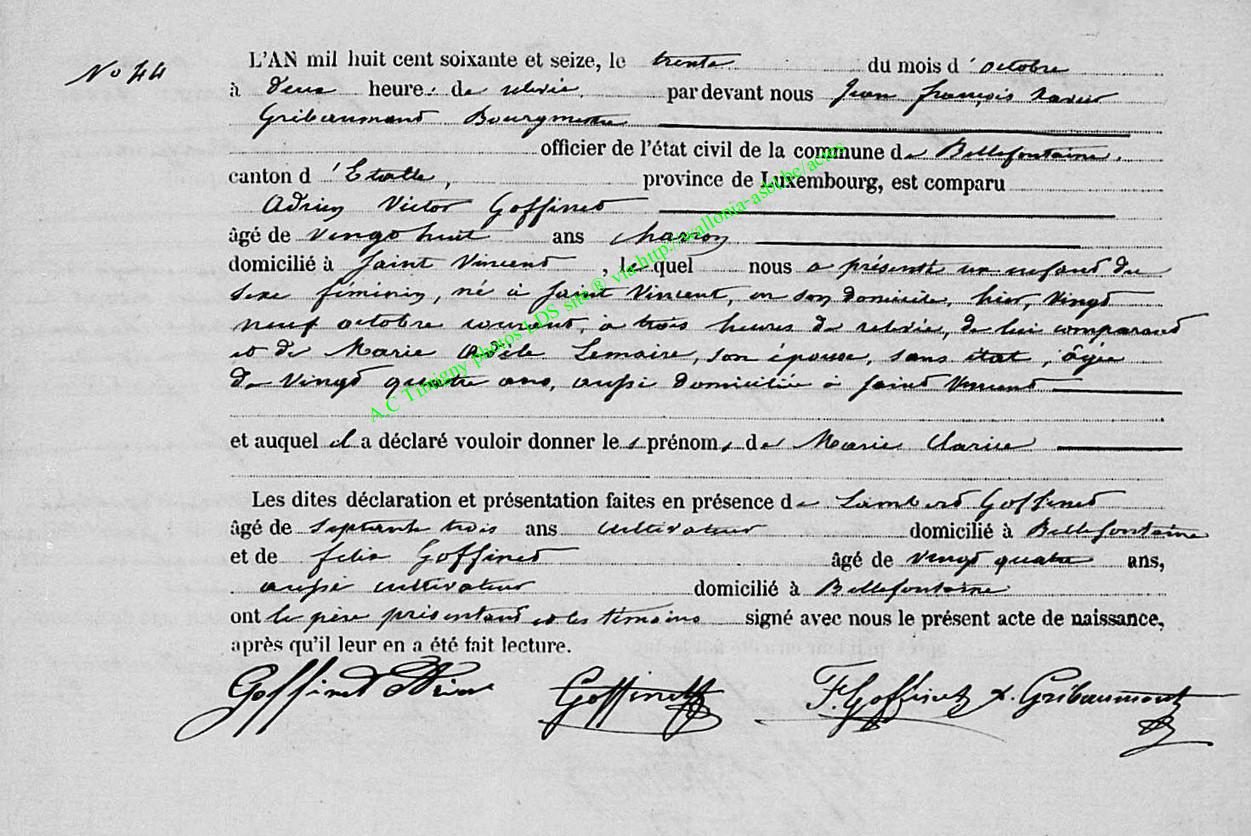 No 44
L'AN mil huit cent soixante et seize, le trente du mois d'octobre
à deux heures de relevée, par devant nous Jean françois Xavier
Gribaumont Bourgmestre
officier de l'état civil de la commune de Bellefontaine,
canton d'Etalle, province de Luxembourg, est comparu
Adrien Victor Goffinet
âgé de vingt huit ans charron
domicilié à Saint Vincent, lequel nous a présenté un enfant du
sexe féminin, né à Saint Vincent, en son domicile, hier, vingt
neuf octobre courant, à trois heures de relevée, de lui comparant
et de Marie Adèle Lemaire, son épouse, sans état, âgée
de vingt quatre ans, aussi domiciliée à Saint Vincent
et auquel il a déclaré vouloir donner les prénoms de Marie Clarice
Les dites déclaration et présentation faites en présence de Lambert Goffinet
âgé de septante trois ans cultivateur domicilié à Bellefontaine
et de felix Goffinet âgé de vingt quatre ans,
aussi cultivateur domicilié à Bellefontaine
ont le père présentant et les témoins signé avec nous le présent acte de naissance,
après qu'il leur en a été fait lecture.
Goffinet Goffinet F. Goffinet X. Gribaumont
A.C Tintigny photos LDS site® via http://wallonia-asbl.be/actes